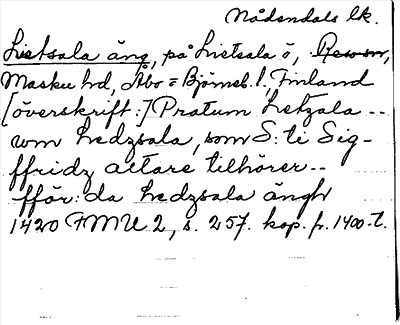 Nådendals lk.
Lietsala äng, på Lietsala ö, Reso sn,
Masku hd, Åbo = Björneb. l. Finland
[överskrift:] Pratum Letzala --
wm Ledzsala, som S: ti Sig-
ffridz altare tilhörer --
fför: da Ledzsala ängh
1420 FMU 2, s. 257. kop. fr. 1400-t.